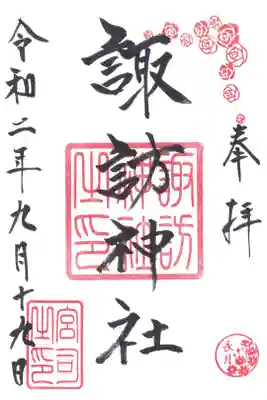 奉拝
諏訪神社
諏訪神社之印
令和二年九月十九日
宮司之印